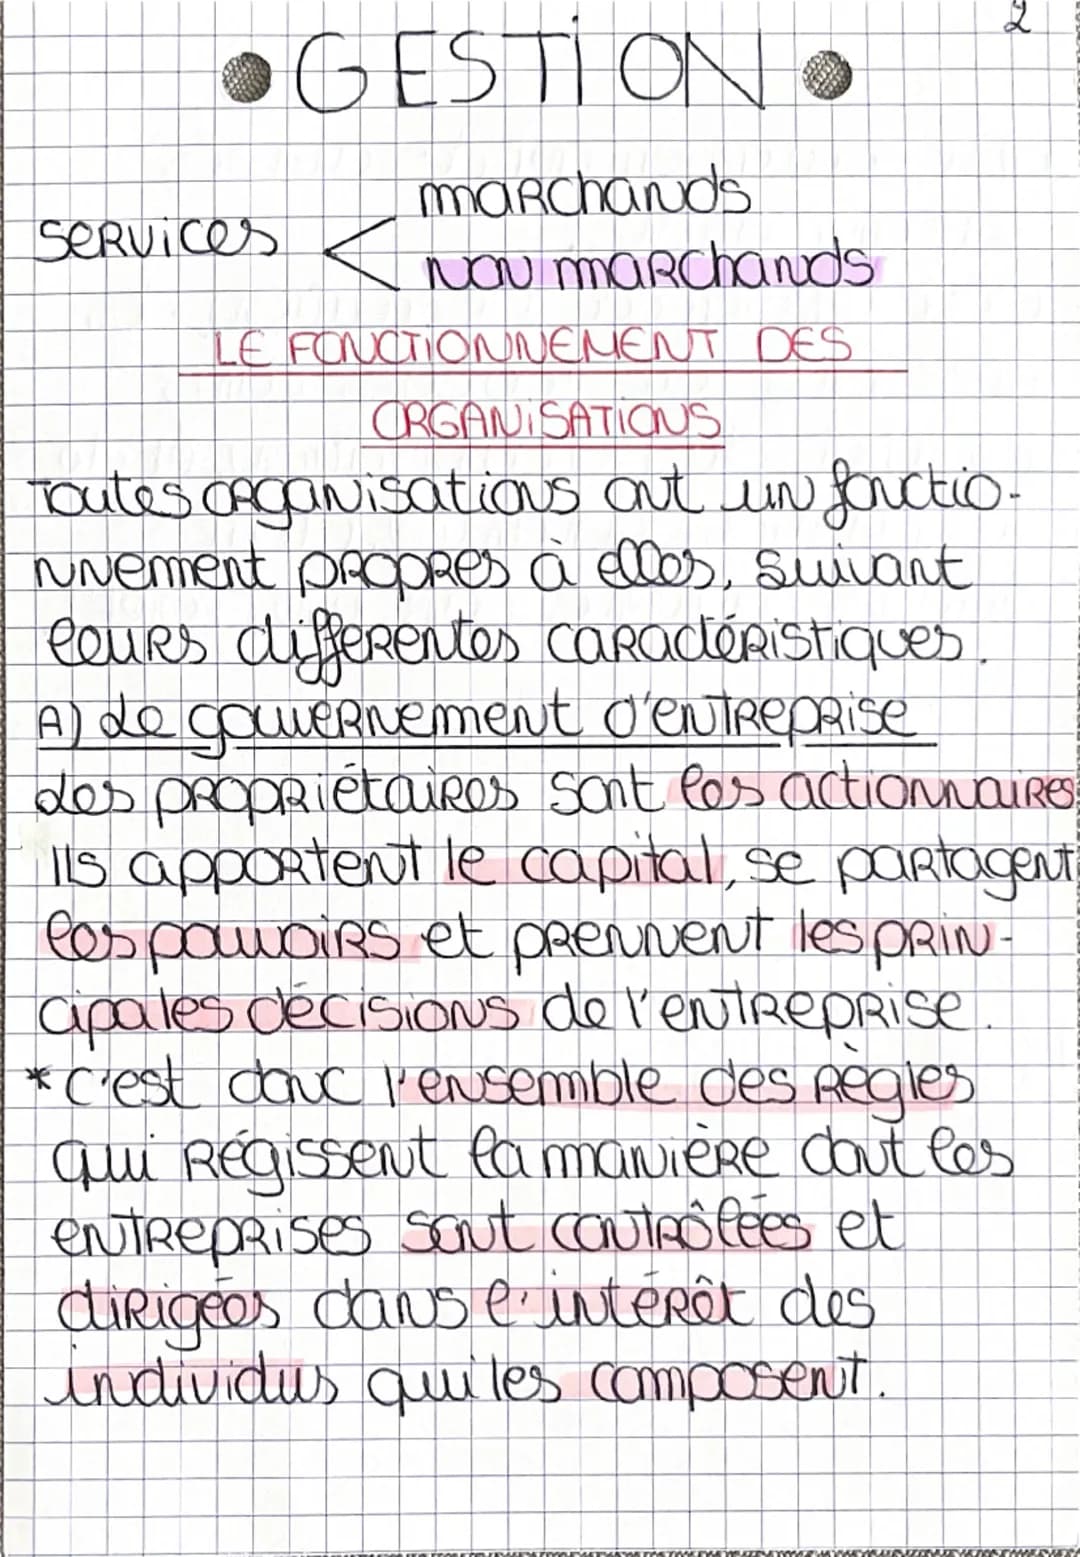 2
GESTiON
services < marchands
non marchands
LE FONCTiONNEMENT DES
ORGANiSATiONS
Toutes organisations ont un fonctio-
nnement propres à elles, suivant
leurs differentes caractéristiques.
A) Le gouvernement d'entreprise
Les propriétaires sont les actionnaires
Ils apportent le capital, se partagent
les pouvoirs et prennent les prin-
cipales décisions de l'entreprise.
* C'est donc l'ensemble des règles
qui régissent la manière dont les
entreprises sont contrôlées et
dirigées dans l'intérêt des
individus qui les composent.